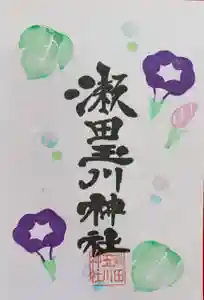 瀬田玉川神社
玉田
川神社